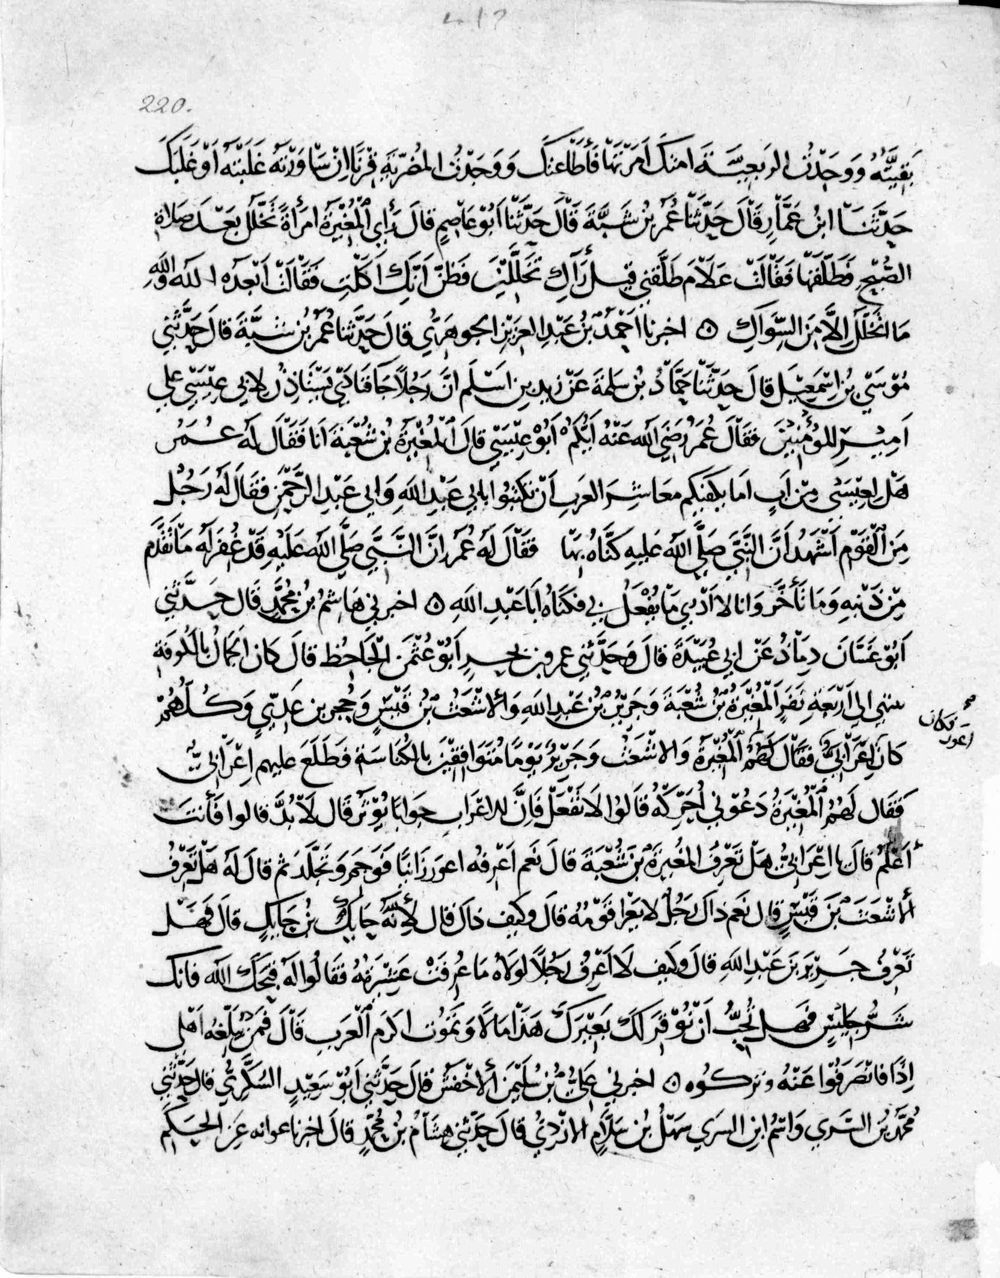 220.
بَقِيتُه وَوَجَدْتُ الرَبعِيَّةَ امَتَكَ اَمَرْتَهَا فَأَطَاعَتكَ وَوَجَدْتُ المُضَرِيَّةِ قِرْنًا اِنْ سَاوَرْتَهُ غَلَبْتَه اَوْ غَلَبَكَ
حَدّثَنَا ابنُ عَمَّارٍ قَالَ حَدّثَنَا عُمَر بنُ شَبَّةَ قَالَ حَدَّثَنا اَبوُ عَاصِمٍ قالَ رَأى المُغِيْرَةُ امرَأةً تَخَلَّلُ بَعْدَ صَلاةِ
الصُّبْحِ فَطَلَّقَهَا فَقَالَتْ عَلَامَ طَلَّقَنِي قِيلَ رَآكِ تَخَلَّلِيْنَ فَظَنَّ اَنَّكِ اَكَلْتِ فَقَالَتْ اَبْعَدَه اللّه وَاللّهِ
مَا اتَخَلَّلُ اِلاَّ مِنَ السِّوَاكِ ٥ اخبرنا احْمَدُ بنُ عَبْدِ العَزِيزِ الجَوهَرِيّ قالَ حَدَّثنا عُمَرُ بنُ شَبَّةَ قالَ حَدَّثَنِي
مُوْسَى بنُ اِسْمَعِيْلَ قالَ حَدّثَنا حَمَّادُ بنُ سَلمَةَ عَنْ زيد بنِ اَسْلَمَ انَّ رَجُلاً جَا فَنَادَى يَسْتَاذِنُ لاَبي عِيْسَى عَلى
اَمِيْرِ المُؤمِنِيْنَ فَقَالَ عُمَرُ رَضِيَ اللّه عَنْهُ اَيُّكُم اَبوْ عِيْسَى قالَ المُغِيْرَةُ بنُ شُعْبَةَ اَنا فَقَالَ لَه عُمَرُ
هَلْ لِعِيْسَى مِنْ اَبٍ اَمَا يَكْفِيكُم مَعَاشِرَ العَرَبِ اَنْ تَكْتَنُوا بِاَبي عَبْدِ اللّهِ وَابي عَبْدِ الرَّحْمٰنِ فَقَالَ لَه رَجُلٌ
مِنَ الْقَوْم اَشْهَدُ اَنَّ النَّبيَّ صَلَّى اللّه عَليهِ كَنَّاهُ بِهَا فَقَالَ لَهُ عُمَرُ اِنَّ النَّبيَّ صَلَّى اللّه عَلَيْهِ قَدْ غُفِرَ لَه مَا تَقَدَّمَ
مِنْ ذَنْبِهِ وَمَا تَأَخَّرَ وَانا لا اَدْرِي مَا يُفْعَلُ بِي فكَنَّاهُ اَبا عَبْدِ اللّهِ ٥ اخبرني هَاشمُ بنُ مُحَمَّدٍ قَال حَدَّثَنِي
اَبوْ غَسَّانَ دِمَاذُ عَنْ ابي عُبَيْدَةَ قالَ وَحَدَّثَني عمرو بن بَحرٍ اَبوْ عُثمٰنَ الْجَاحِظ قالَ كان الجَمَالُ بالكُوفَةِ
ينتهي الى اَرْبَعَةِ نَفَرٍ الْمُغِيْرَةُ بنُ شُعْبَةَ وَجَرِيرُ بنُ عَبْدِ اللّهِ وَالاشْعَثُ بنُ قَيْسٍ وَحُجرُ بن عَدِيٍّ وَكُلُّهُمْ
كانَ اَعوَر
كانَ اَعْرَابيٌّ فَقَالَ لَهُمُ الْمُغِيْرَةُ وَالاشْعَث وَجَرِيْرُ يَوْمًا مُتَوَافِقِيْنَ بِالكُنَاسَة فَطَلَعَ عليهم اعْرَابيٌّ
فَقَال لَهُمُ الْمُغِيْرَةُ دَعُوْنِي اُحَرِّكهُ قَالوُا لاَ تَفْعَلْ فَاِنَّ للاعْرَابِ جَوابًا يُؤثَر قَال لَا بُدَّ قَالوا فَأنتَ
اَعْلَمُ قال يا اعْرَابيُّ هَلْ تَعْرِفُ المُغيرَةَ بْنَ شُعْبَةَ قال نَعم اَعْرِفُه اعوَر زَانيًا فَوَجَمَ وَتَجَلَّدَ ثم قَالَ لَه هَلْ تَعْرِفُ
الاَشْعَثَ بْنَ قَيْسٍ قال نَعم ذاكَ رَجُلٌ لا يَعْرا قَوْمُهُ قالَ وَكَيفَ ذاك قال لأِنَّه حَايِكُ بنُ حَايِكٍ قالَ فَهَلْ
تَعْرِفُ جَرِيْرَ بنَ عَبْدِ اللّهِ قالَ وَكَيفَ لا اَعْرِفُ رَجُلاً لَوْلَاهُ مَا عُرِفَتْ عَشِيْرَتُهُ فقَالُوا لَه قَبَّحَكَ اللّه فَانكَ
شَرُّ جَلِيْسٍ فهَل تُحِبُّ اَنْ نُوْقِرَ لَكَ بَعِيْرَكَ هَذَا مَالًا وَتَمُوْتَ اكرَمَ الْعَرَبِ قَالَ فَمَنْ يُبَلِّغُه اَهْلي
اِذًا فانْصَرَفُوْا عَنْهُ وَتركوُه ٥ اخبرني عَليُّ بْنُ سُلَيْمٰنَ الاخْفَشُ قالَ حَدَّثني اَبوْ سَعِيْدٍ السُكَّرِيُّ قالَ حَدَّثَني
مُحَمَّدُ بْنُ السَّرِي وَاسْمُ ابنِ السَرِي سَهْلُ بنُ سَلَّامٍ الازْدِيُّ قالَ حَدّثَني هِشَامُ بنُ مُحَمَّدٍ قالَ اخبرنا عَوانَه عَنِ الحَكَمِ